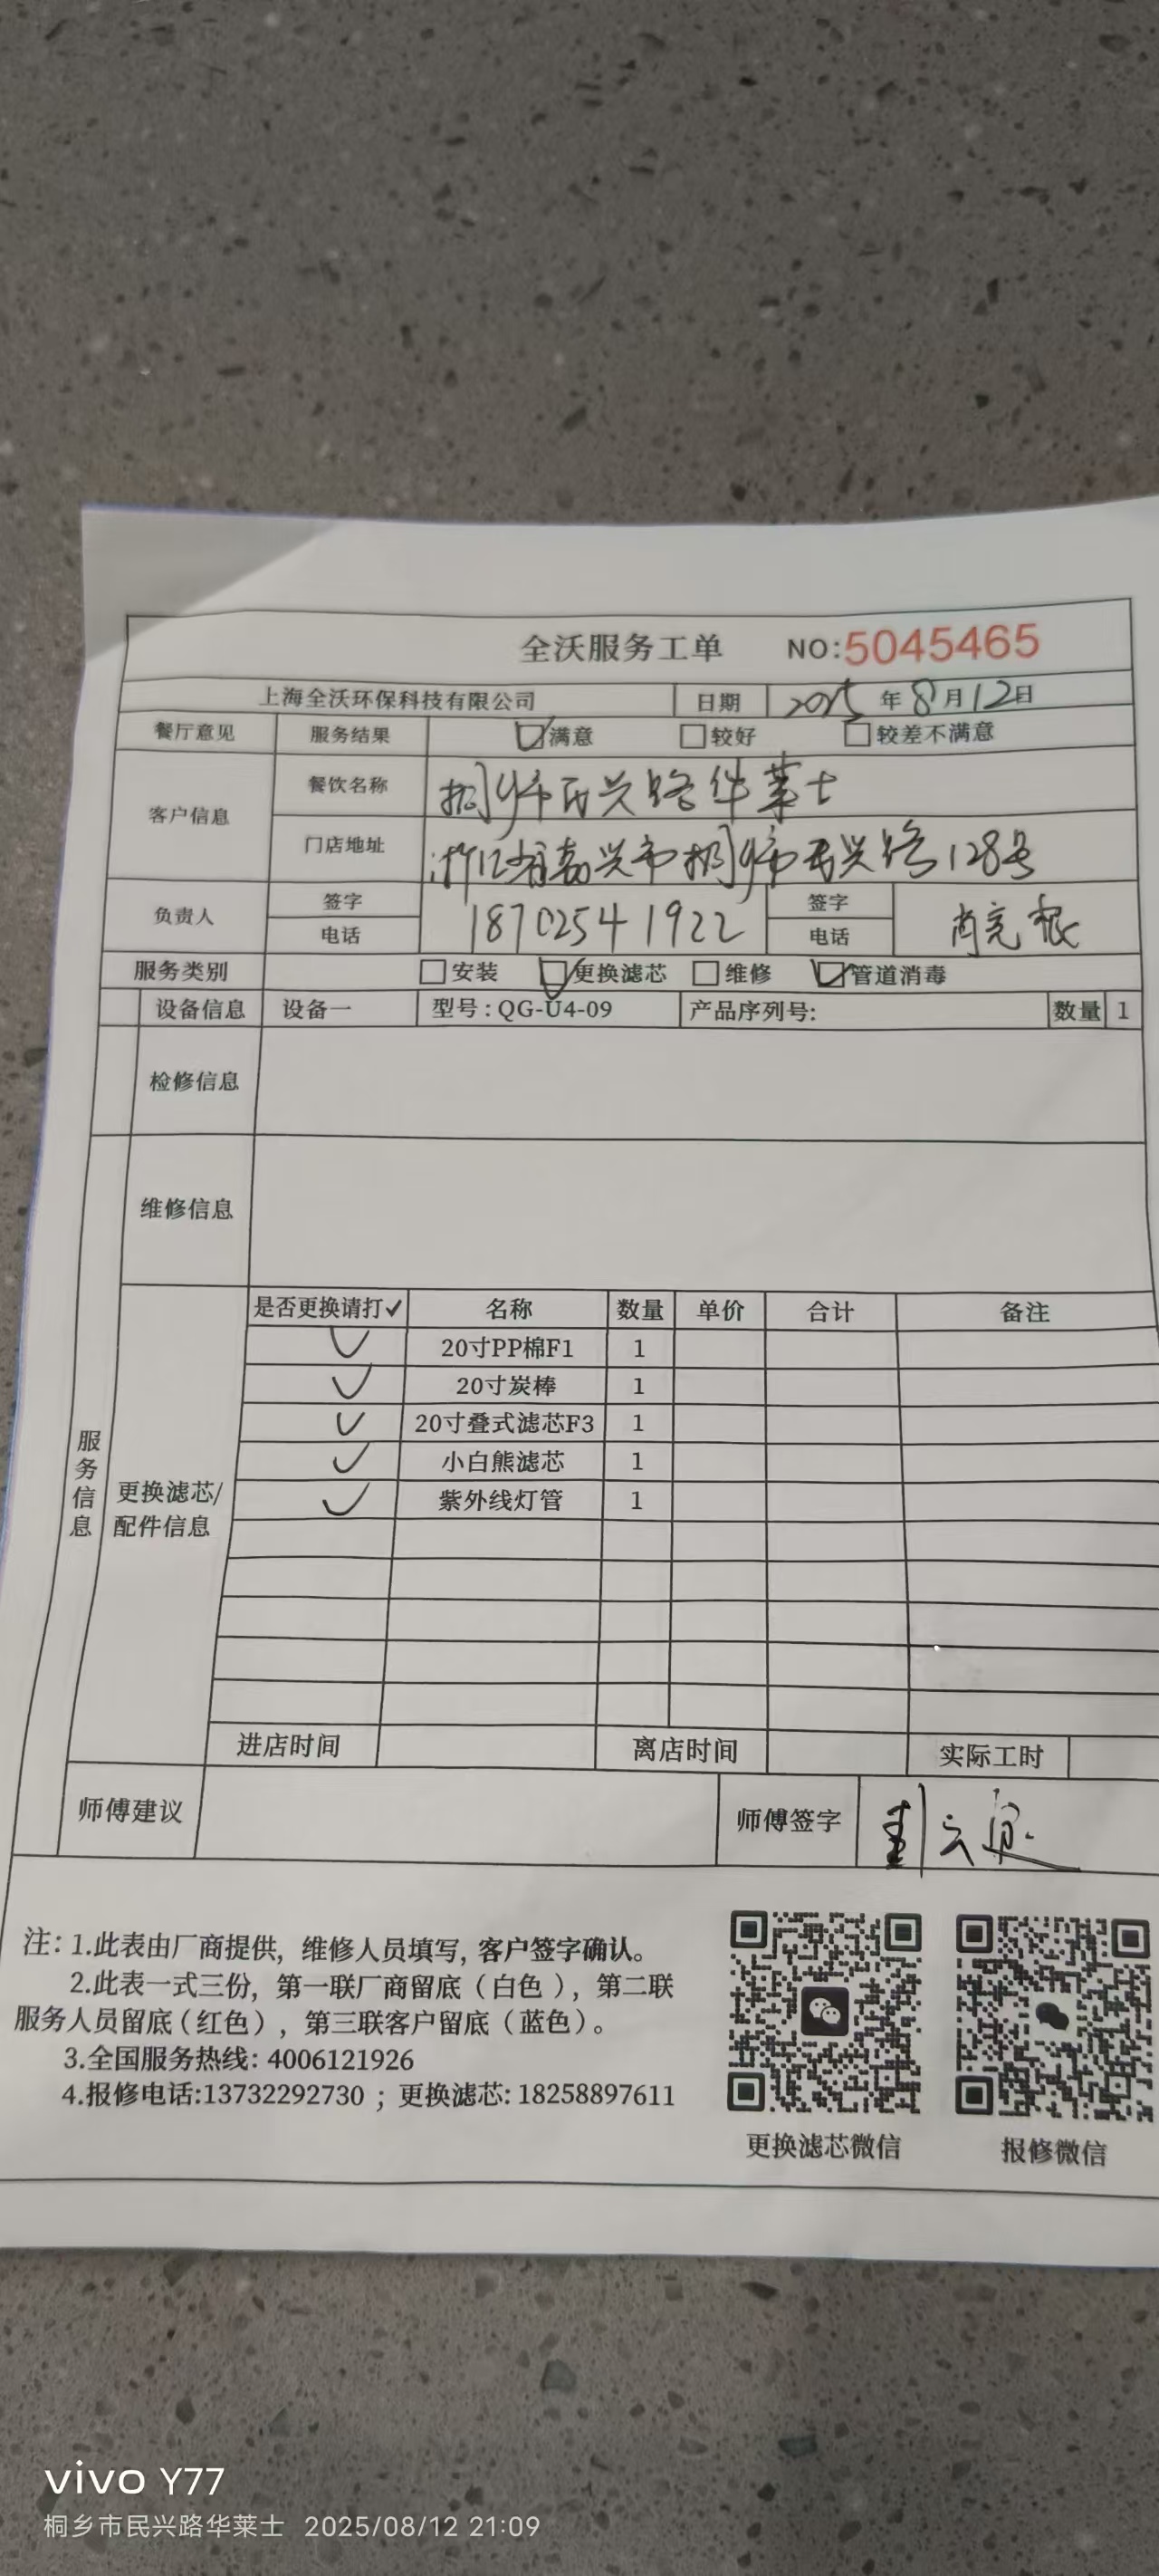 全沃服务工单 NO:5045465
上海全沃环保科技有限公司 日期 2025年8月12日
餐厅意见 服务结果 满意 较好 较差不满意
客户信息 餐饮名称 桐乡市民兴路华莱士
门店地址 浙江省嘉兴市桐乡市民兴路128号
负责人 签字 电话 18702541922 签字 电话 肖亮
服务类别 安装 更换滤芯 维修 管道消毒
设备信息 设备一 型号:QG-U4-09 产品序列号: 数量 1
检修信息
维修信息
服务信息
更换滤芯/配件信息
是否更换请打✓ 名称 数量 单价 合计 备注
✓ 20寸PP棉F1 1
✓ 20寸炭棒 1
✓ 20寸叠式滤芯F3 1
✓ 小白熊滤芯 1
✓ 紫外线灯管 1
进店时间 离店时间 实际工时
师傅建议 师傅签字
注: 1.此表由厂商提供, 维修人员填写, 客户签字确认。
2.此表一式三份, 第一联厂商留底（白色）, 第二联
服务人员留底（红色）, 第三联客户留底（蓝色）。
3.全国服务热线: 4006121926
4.报修电话:13732292730 ; 更换滤芯: 18258897611
更换滤芯微信 报修微信
vivo Y77
桐乡市民兴路华莱士 2025/08/12 21:09